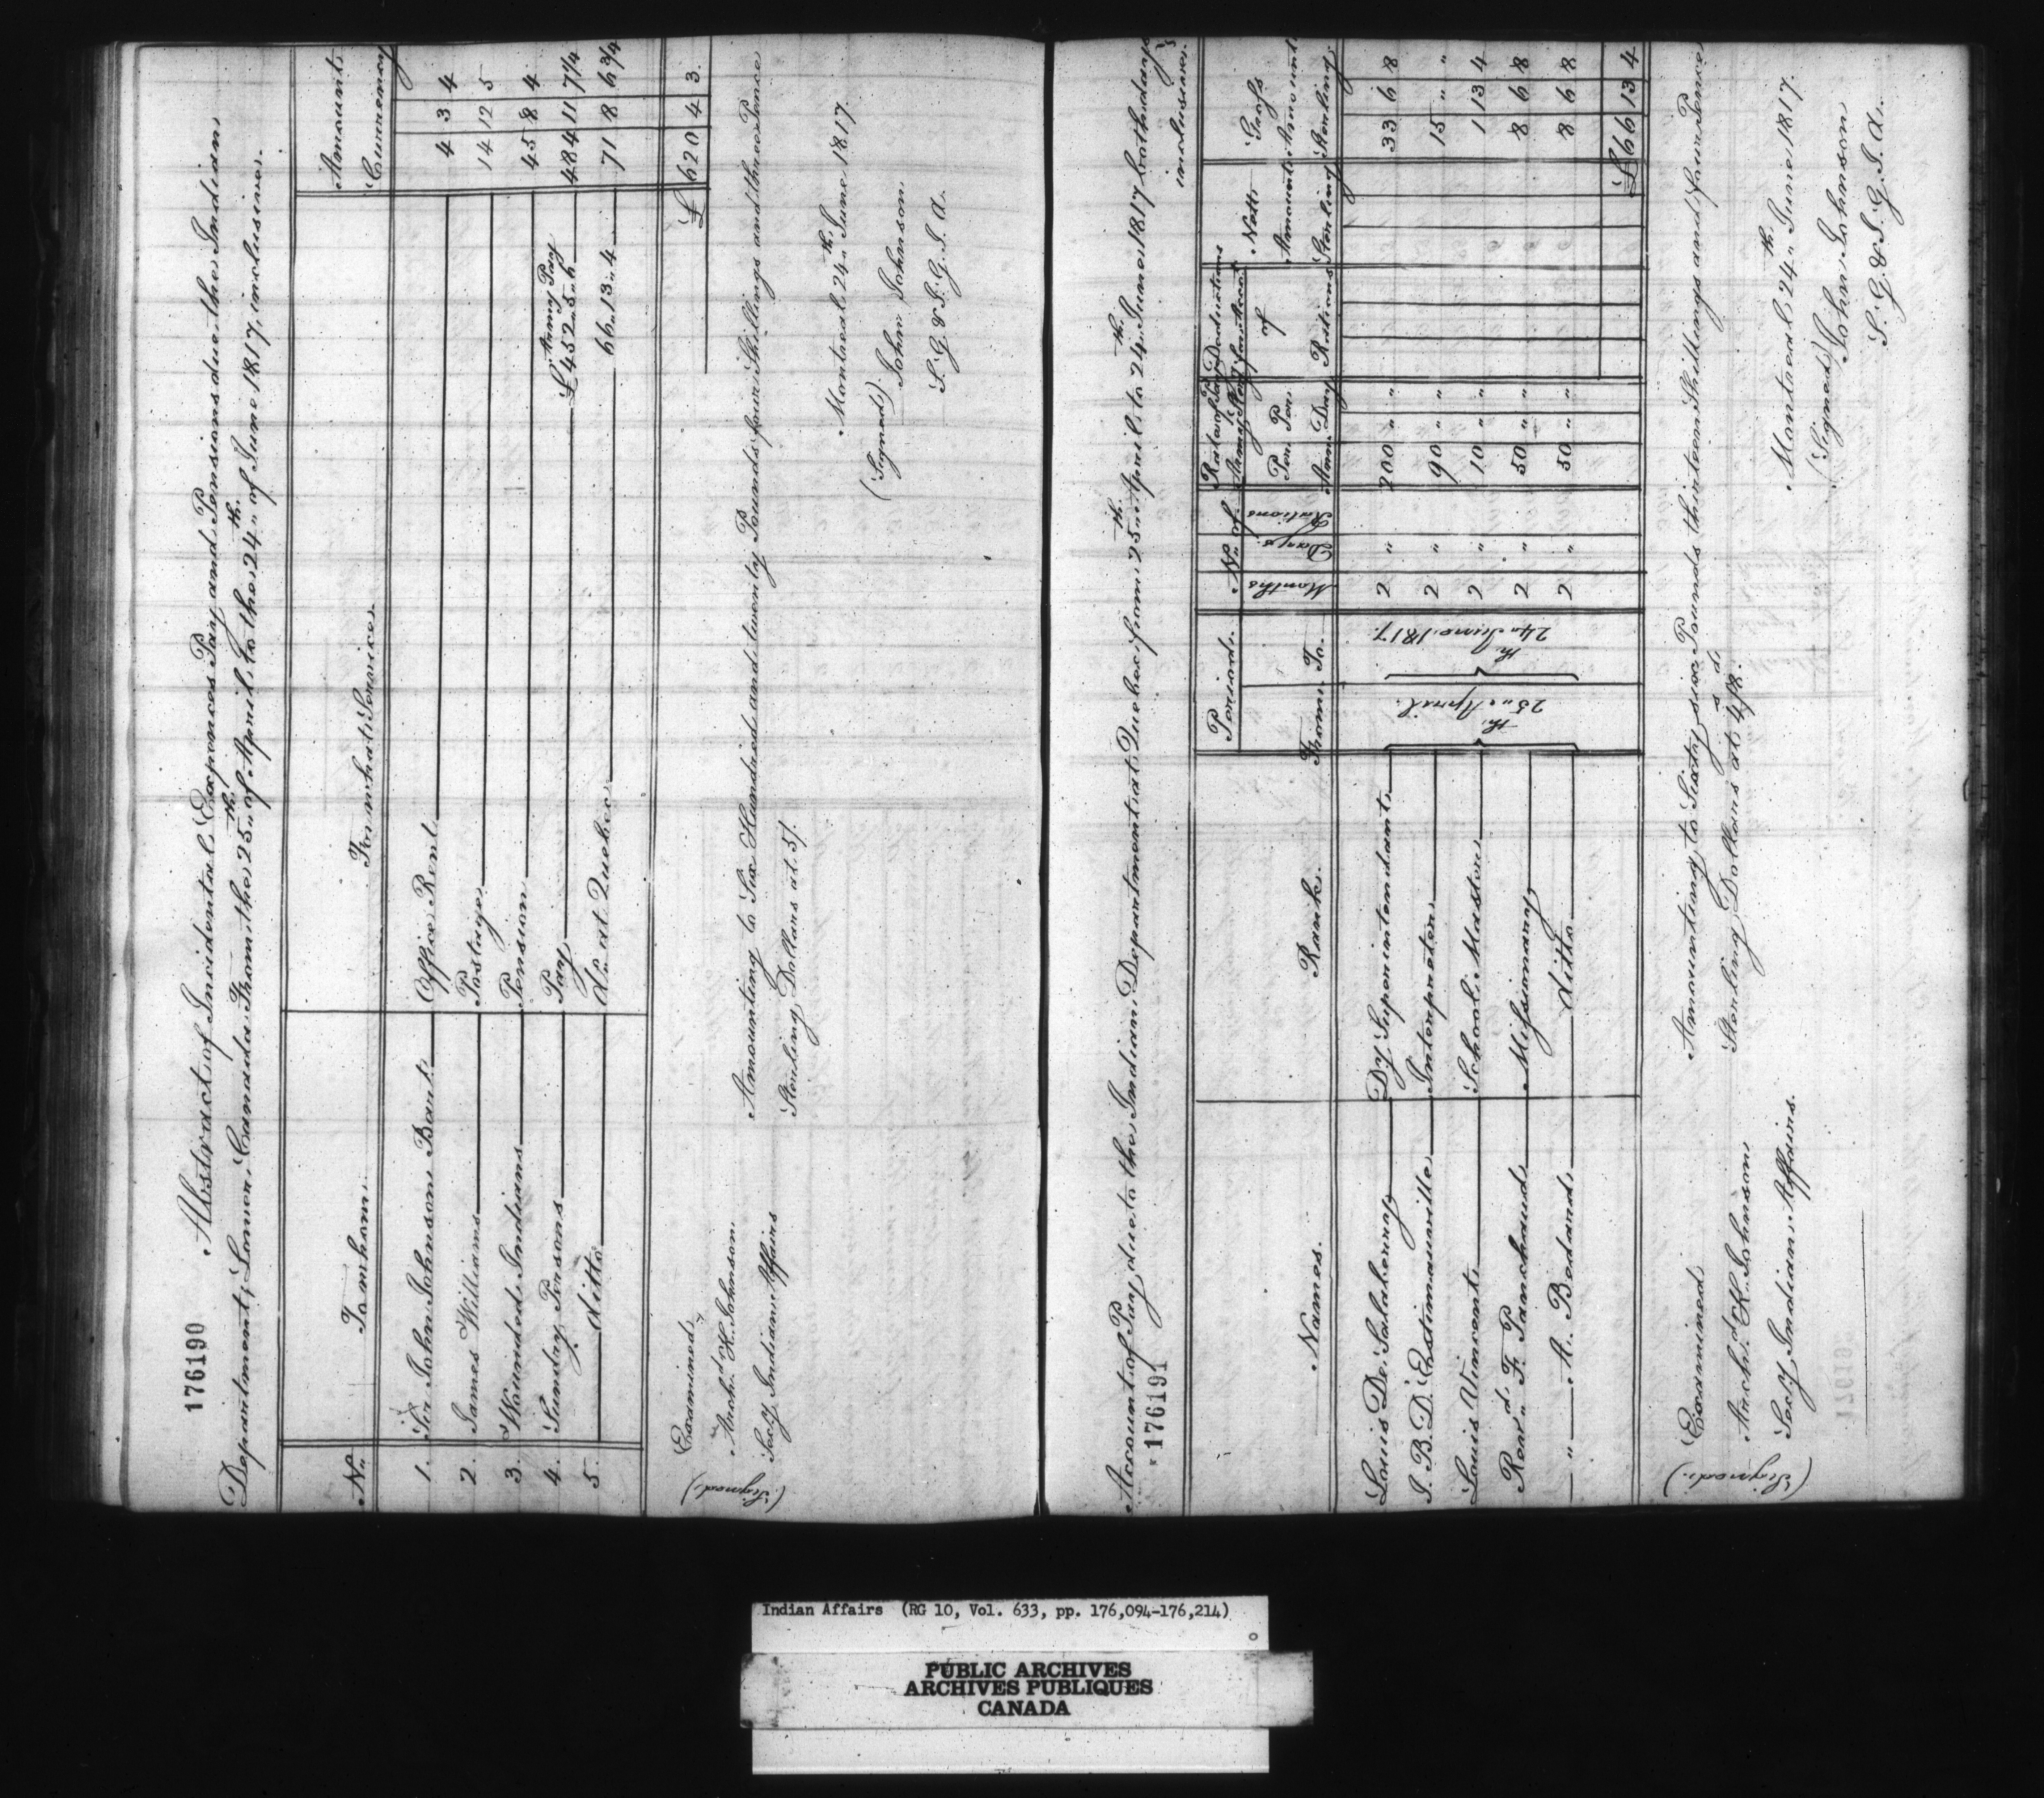 176190
Abstract of Incidental Expences Pay and Pensions due the Indian
Department, Lower Canada From the 25th of April to the 24th of June 1817, inclusive.
No. To whom For what Service Amount Currency
1. Sir John Johnson Bart. Office Rent 4 3 4
2. James Williams Postage 14 12 5
3. Wounded Indians Pension 45 8 4
4. Sundry Persons Pay Army Pay £452..5..6 484 11 7 1/4
5. ditto Do. at Quebec 66..13..4 71 8 6 3/4
£ 620 4 3
Amounting to Six Hundred and twenty Pounds four Shillings and three Pence
Sterling Dollars at 5/.
Examined
(Signed) Archd. K. Johnson
Secy Indian Affairs
Montreal 24th June 1817
(Signed) John Johnson
S. G. & I. G. I. A.
Account of Pay due to the Indian Department at Quebec from 25th April to 24th June 1817 both days
inclusive.
176191
Names. Rank. Period. From To No. of Months Days Rations Rate of Pay Army Sterg Per Ann. Per Day Deductions of Rations Nett Amount Sterling Gross Amount Sterling
Louis De Salaberry Dy Superintendant 2 " 200 " " 33 6 8
J. B. D. Estimauville Interpreter 2 " 90 " " 15 " "
Louis Vincent School Master 25th April 24th June 1817 2 " 10 " " 1 13 4
Revd. F. Panchaud Missionary 2 " 50 " " 8 6 8
" A. Bedard ditto 2 " 50 " " 8 6 8
£ 66 13 4
Amounting to Sixty six Pounds thirteen Shillings and four Pence
Sterling Dollars at 4s/8d.
Examined
(Signed) Archd. K. Johnson
Secy Indian Affairs.
Montreal 24th June 1817.
(Signed) John Johnson
S. G. & I. G. I. A.
Indian Affairs (RG 10, Vol. 633, pp. 176,094-176,214)
PUBLIC ARCHIVES
ARCHIVES PUBLIQUES
CANADA